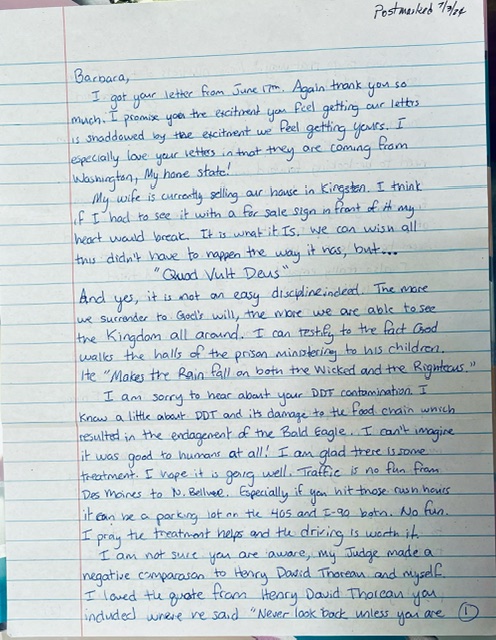 Postmarked 7/3/24
Barbara,
I got your letter from June 17th. Again thank you so
much. I promise you the excitment you feel getting our letters
is shaddowed by the excitment we feel getting yours. I
especially love your letters in that they are coming from
Washington, My home state!
My wife is currently selling our house in Kingston. I think
if I had to see it with a for sale sign in front of it my
heart would break. It is what it Is, we can wish all
this didn't have to happen the way it has, but...
"Quod Vult Deus"
And yes, it is not an easy discipline indeed. The more
we surrender to God's will, the more we are able to see
the Kingdom all around. I can testify to the fact God
walks the halls of the prison ministering to his children.
He "Makes the Rain fall on both the Wicked and the Righteous."
I am sorry to hear about your DDT contamination. I
Know a little about DDT and its damage to the food chain which
resulted in the endagement of the Bald Eagle. I can't imagine
it was good to humans at all! I am glad there is some
treatment. I hope it is going well. Traffic is no fun from
Des Moines to N. Bellvue. Especially if you hit those rush hours
it can be a parking lot on the 405 and I-90 both. No fun.
I pray the treatment helps and the driving is worth it.
I am not sure you are aware, my Judge made a
negative comparason to Henry David Thoreau and myself.
I loved the quote from Henry David Thoreau you
included where he said "Never look back unless you are
1